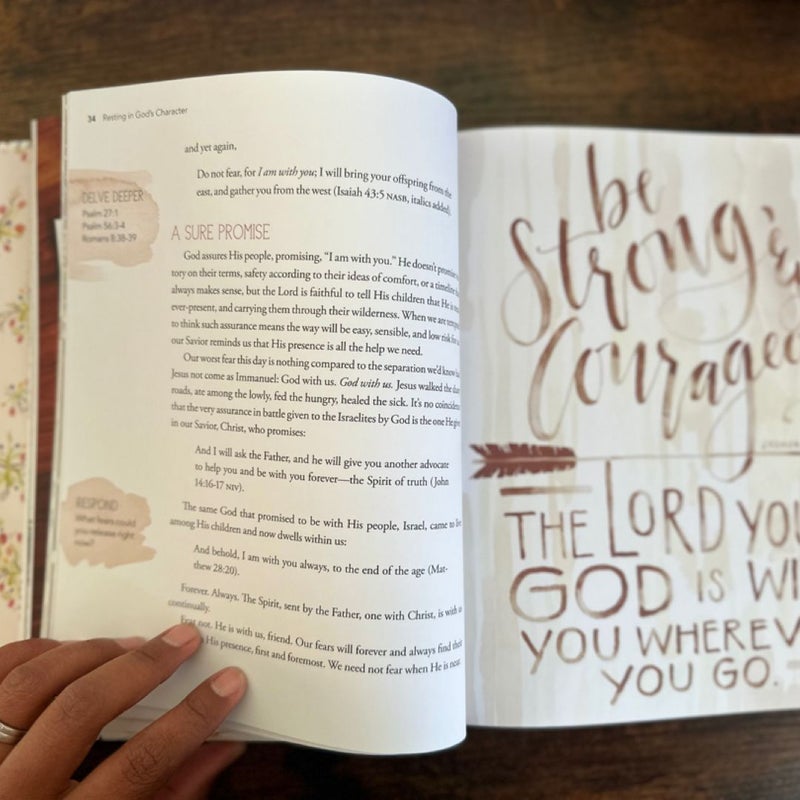 34 Resting in God's Character
and yet again,
Do not fear, for I am with you; I will bring your offspring from the
east, and gather you from the west (Isaiah 43:5 NASB, italics added).
DELVE DEEPER
Psalm 27:1
Psalm 56:3-4
Romans 8:38-39
A SURE PROMISE
God assures His people, promising, "I am with you." He doesn't promise
tory on their terms, safety according to their ideas of comfort, or a timeline
always makes sense, but the Lord is faithful to tell His children that He is
ever-present, and carrying them through their wilderness. When we are
to think such assurance means the way will be easy, sensible, and low risk
our Savior reminds us that His presence is all the help we need.
Our worst fear this day is nothing compared to the separation we'd know
Jesus not come as Immanuel: God with us. God with us. Jesus walked the
roads, ate among the lowly, fed the hungry, healed the sick. It's no
that the very assurance in battle given to the Israelites by God is the one He
in our Savior, Christ, who promises:
And I will ask the Father, and he will give you another advocate
to help you and be with you forever—the Spirit of truth (John
14:16-17 NIV).
RESPOND
What fears could
you release right
now?
The same God that promised to be with His people, Israel, came to
among His children and now dwells within us:
And behold, I am with you always, to the end of the age (Mat-
thew 28:20).
Forever. Always. The Spirit, sent by the Father, one with Christ, is with
continually.
Fear not. He is with us, friend. Our fears will forever and always find their
His presence, first and foremost. We need not fear when He is near.
be
Strong &
THE LORD YOU
GOD IS
YOU
YOU GO.